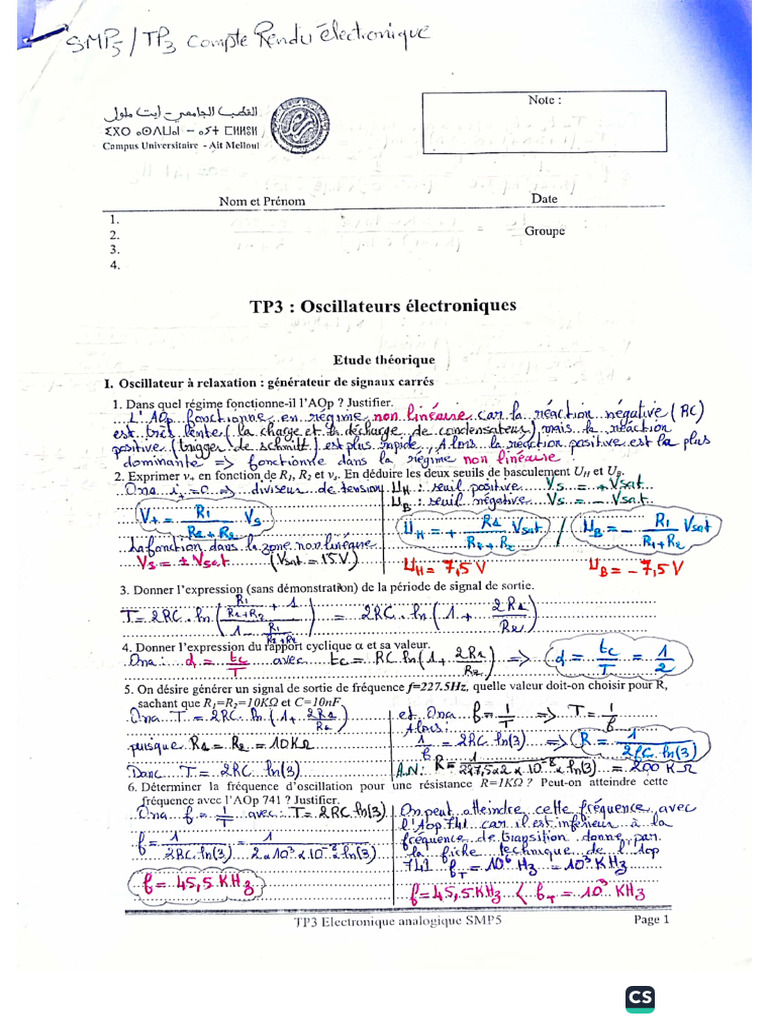 SMP5 / TP3 compte Rendu électronique
القطب الجامعي أيت ملول
Campus Universitaire - Ait Melloul
Note :
Nom et Prénom
Date
1.
2.
Groupe
3.
4.
TP3 : Oscillateurs électroniques
Etude théorique
I. Oscillateur à relaxation : générateur de signaux carrés
1. Dans quel régime fonctionne-il l'AOp ? Justifier.
L'AOp fonctionne en régime non linéaire car la réaction négative (RC)
est très lente (la charge et la décharge de condensateurs), mais la réaction
positive (trigger de schmitt) est plus rapide, Alors la réaction positive est la plus
dominante => fonctionne dans la régime non linéaire
2. Exprimer v+ en fonction de R1, R2 et vs. En déduire les deux seuils de basculement UH et UB.
On a i=0 => diviseur de tension
UH : seuil positive Vs = +Vsat
UB : seuil négative Vs = -Vsat
V+ = R1/(R1+R2) Vs
UH = + R1/(R1+R2) Vsat / UB = - R1/(R1+R2) Vsat
La fonction dans la zone non linéaire
Vs = ± Vsat (Vsat = 15V)
UH = 7,5 V UB = - 7,5 V
3. Donner l'expression (sans démonstration) de la période de signal de sortie.
T = 2RC ln((R1/(R1+R2) + 1)/(1 - R1/(R1+R2))) = 2RC ln(1 + 2R1/R2)
4. Donner l'expression du rapport cyclique α et sa valeur.
On a : α = tc/T avec tc = RC ln(1 + 2R1/R2) => α = tc/T = 1/2
5. On désire générer un signal de sortie de fréquence f=227.5Hz, quelle valeur doit-on choisir pour R,
sachant que R1=R2=10KΩ et C=10nF.
On a T = 2RC ln(1 + 2R1/R2)
puisque R1 = R2 = 10KΩ
Danc T = 2RC ln(3)
et On a f = 1/T => T = 1/f
Alors :
1/f = 2RC ln(3) => R = 1/(2fC ln(3))
A.N : R = 1/(227,5 x 2 x 10^-8 x ln(3)) = 200 KΩ
6. Déterminer la fréquence d'oscillation pour une résistance R=1KΩ ? Peut-on atteindre cette
fréquence avec l'AOp 741 ? Justifier.
On a f = 1/T avec : T = 2RC ln(3)
f = 1/(2RC ln(3)) = 1/(2 x 10^3 x 10^-8 x ln(3))
f = 45,5 KHz
On peut atteindre cette fréquence avec
l'Aop 741 car il est inférieur à la
fréquence de transition donne par
la fiche technique de l'Aop
741 fT = 10^6 Hz = 10^3 KHz
f = 45,5 KHz < fT = 10^3 KHz
TP3 Electronique analogique SMP5
Page 1
CS